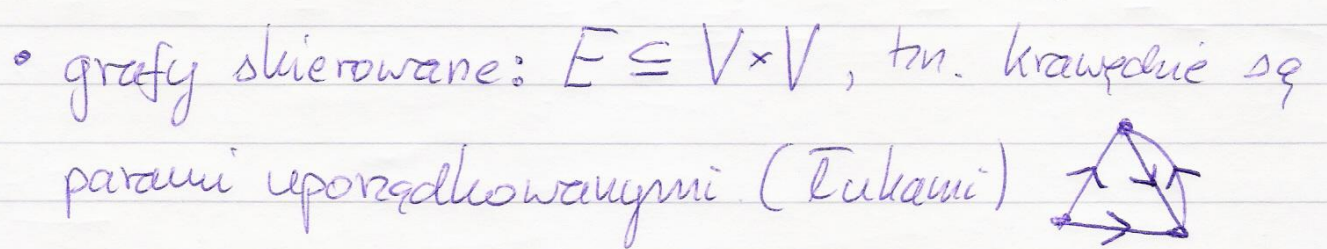 • grafy skierowane: E ⊆ V×V, tzn. krawędzie są
parami uporządkowanymi (łukami)